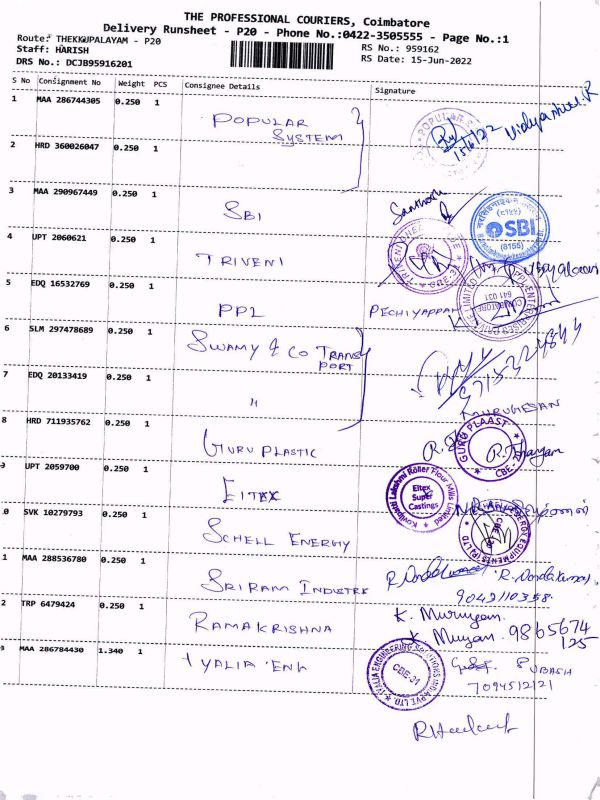 THE PROFESSIONAL COURIERS, Coimbatore
Delivery Runsheet - P20 - Phone No.:0422-3505555 - Page No.:1
Route: THEKKUPALAYAM - P20
RS No.: 959162
Staff: HARISH
RS Date: 15-Jun-2022
DRS No.: DCJB95916201
S No Consignment No Weight PCS Consignee Details Signature
1 MAA 286744305 0.250 1 POPULAR SYSTEM 15/6/22
2 HRD 360026047 0.250 1
3 MAA 290967449 0.250 1 SBI Santhosh SBI
4 UPT 2060621 0.250 1 TRIVENI
5 EDQ 16532769 0.250 1 PPL PECHIYAPPAN
6 SLM 297478689 0.250 1 SWAMY & CO TRANSPORT
7 EDQ 20133419 0.250 1 " MURUGESAN
8 HRD 711935762 0.250 1 GURU PLASTIC GURU PLAAST CBE
9 UPT 2059700 0.250 1 EITEX Kovilpatti Lakshmi Roller Flour Mills Limited Eltex Super Castings
0 SVK 10279793 0.250 1 SCHELL ENERGY
1 MAA 288536780 0.250 1 SRIRAM INDISTRE R. Nandakumar,
9042110358
2 TRP 6479424 0.250 1 RAMAKRISHNA K. Murugan.
K Muugan. 9865674
125
3 MAA 286784430 1.340 1 IYALIA ENK CBE-31 SUBASH
7094512121